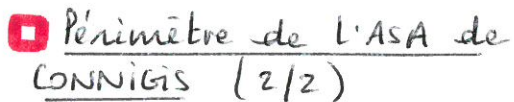 Périmètre de l'ASA de
CONNIGIS (2/2)